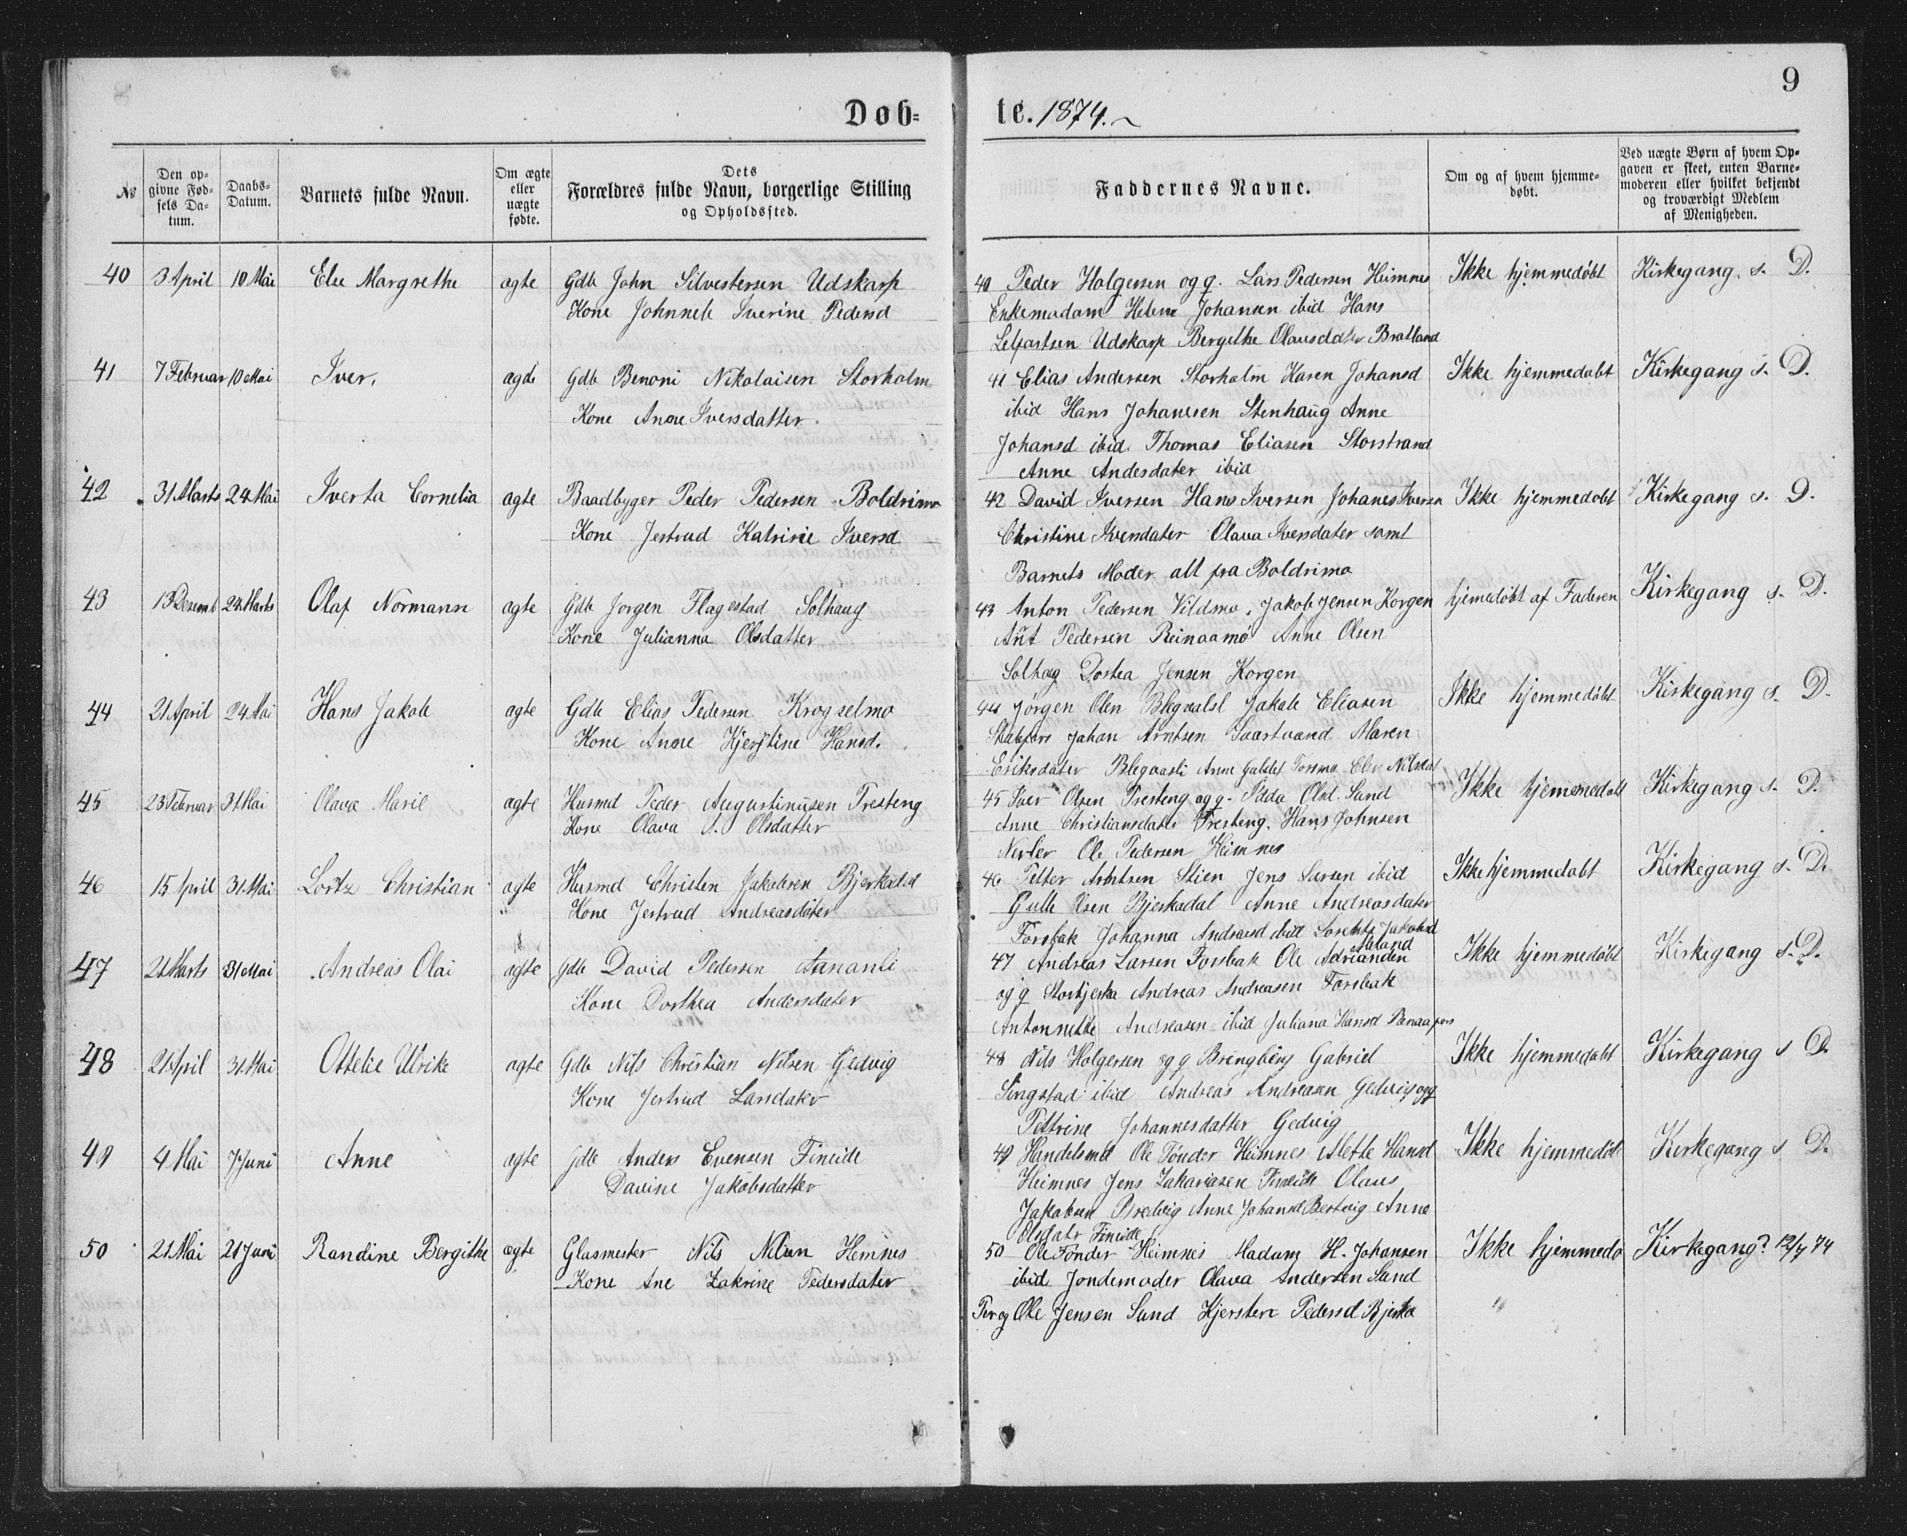 9
Døb-
te. 1874.
No
Den opgivne Fødsels Datum.
Daabs-Datum.
Barnets fulde Navn.
Om ægte eller uægte fødte.
Dets Forældres fulde Navn, borgerlige Stilling og Opholdssted.
Faddernes Navne.
Om og af hvem hjemmedøbt.
Ved uægte Børn af hvem Opgaven er skeet, enten Barnemoderen eller hvilket bekjendt og troværdigt Medlem af Menigheden.
40 3 April 10 Mai Margrethe ægte Gdb John Silvestersen Udskarp
Kone Iverine Pedersd
40 Peder Holgersen og g. Lars Pedersen Heimnes Ikke hjemmedøbt Kirkegang s. D.
Enkemadam Helene Johansen ibid Hans
Udskarp Bergithe Olausdater Bratland
41 7 Februar 10 Mai Iver. ægte Gdb Benoni Nikolaisen Storholm
Kone Anne Iversdatter.
41 Elias Andersen Storholm Karen Johansd Ikke hjemmedøbt Kirkegang s. D.
ibid Hans Johanesen Stenhaug Anne
Johansd ibid. Thomas Eliasen Storstrand
Anne Andesdater ibid
42 31 Marts 24 Mai Iverta Cornelia ægte Baadbyger Peder Pedersen Boldrimo
Kone Jertrud Katrine Iversd
42 David Iversen Hans Iversen Johanes Iversen Ikke hjemmedøbt Kirkegang s. D.
Christine Iversdater Olava Iversdater samt
Barnets Moder alt fra Boldrimo
43 13 Desemb 24 Marts Olaf Normann ægte Gdb Jorgen Flagestad Solhaug
Kone Julianna Olsdatter
43 Anton Pedersen Vildmo, Jakob Jensen Korgen hjemedøbt af Faderen Kirkegang s. D.
Pedersen Reinaamo Anne Olsen
Solhag Dortea Jensen Korgen
44 21 April 24 Mai Hans Jakob ægte Gdb Elias Pedersen Krogselmo
Kone Anne Kjerstine Hansd.
44 Jørgen Olen Jakob Eliasen Ikke hjemmedøbt Kirkegang s. D.
Johan Arntsen Svartvand Maren
Eriksdater Anne
45 23 Februar 31 Mai Olava Marie ægte Husmd Peder Augustinusen Presteng
Kone Olava A. Olsdatter
45 Iver Olsen Presteng og g. Olsd. Sand Ikke hjemmedøbt Kirkegang s. D.
Anne Christiansdater Presteng. Hans Johnsen
Ole Pedersen Heimnes
46 15 April 31 Mai Christian ægte Husmd Christen Jakobsen Bjerkadal
Kone Jertrud Andreasdater
46 Petter Arntsen Stien Jens Larsen ibid Ikke hjemmedøbt Kirkegang s. D.
Bjerkadal Anne Andreasdater
Forsbak Johanna Andreasd ibid
47 21 Marts 31 Mai Andreas Olai ægte Gdb David Pedersen
Kone Dorthea Andersdater
47 Andreas Larsen Forsbak Ole Ikke hjemmedøbt Kirkegang s. D.
og g Storbjerka Andreas Andreasen Forsbak
Antonnette Andreasen ibid Juliana Hansd
48 2 April 31 Mai Ottelie Ulrike ægte Gdb Nils Christian Nilsen Gedvig
Kone Jertrud Larsdater
48 Nils Holgersen og g Gabriel Ikke hjemmedøbt Kirkegang s D.
ibid Andreas Andreasen Gedvig og g
Pettrine Johannesdatter Gedvig
49 4 Mai 7 Juni Anne ægte Gdb Anders Evensen Fineide
Davine Jakobsdatter
49 Handelsmd Ole Tønder Heimnes Mette Hansd Ikke hjemmedøbt Kirkegang s D.
Heimnes Jens Zakariasen Fineide Olaus
Jakobsen Bredvig Anne Johansd Anne
Olsdatr Fineide
50 21 Mai 21 Juni Randine Bergithe ægte Glasmester Nils Nilsen Hemnes
Kone Ane Zakrine Pedersdater
50 Ole Tønder Heimnes Madam H. Johansen Ikke hjemmedø Kirkegang? 12/7 74
ibid Jordemoder Olava Andersen Sand
Ole Jensen Sand Pedersd Bjerka
"